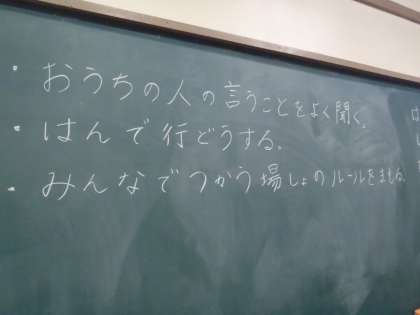 ・おうちの人の言うことをよく聞く。
・はんで行どうする。
・みんなでつかう場しょのルールをまもる。